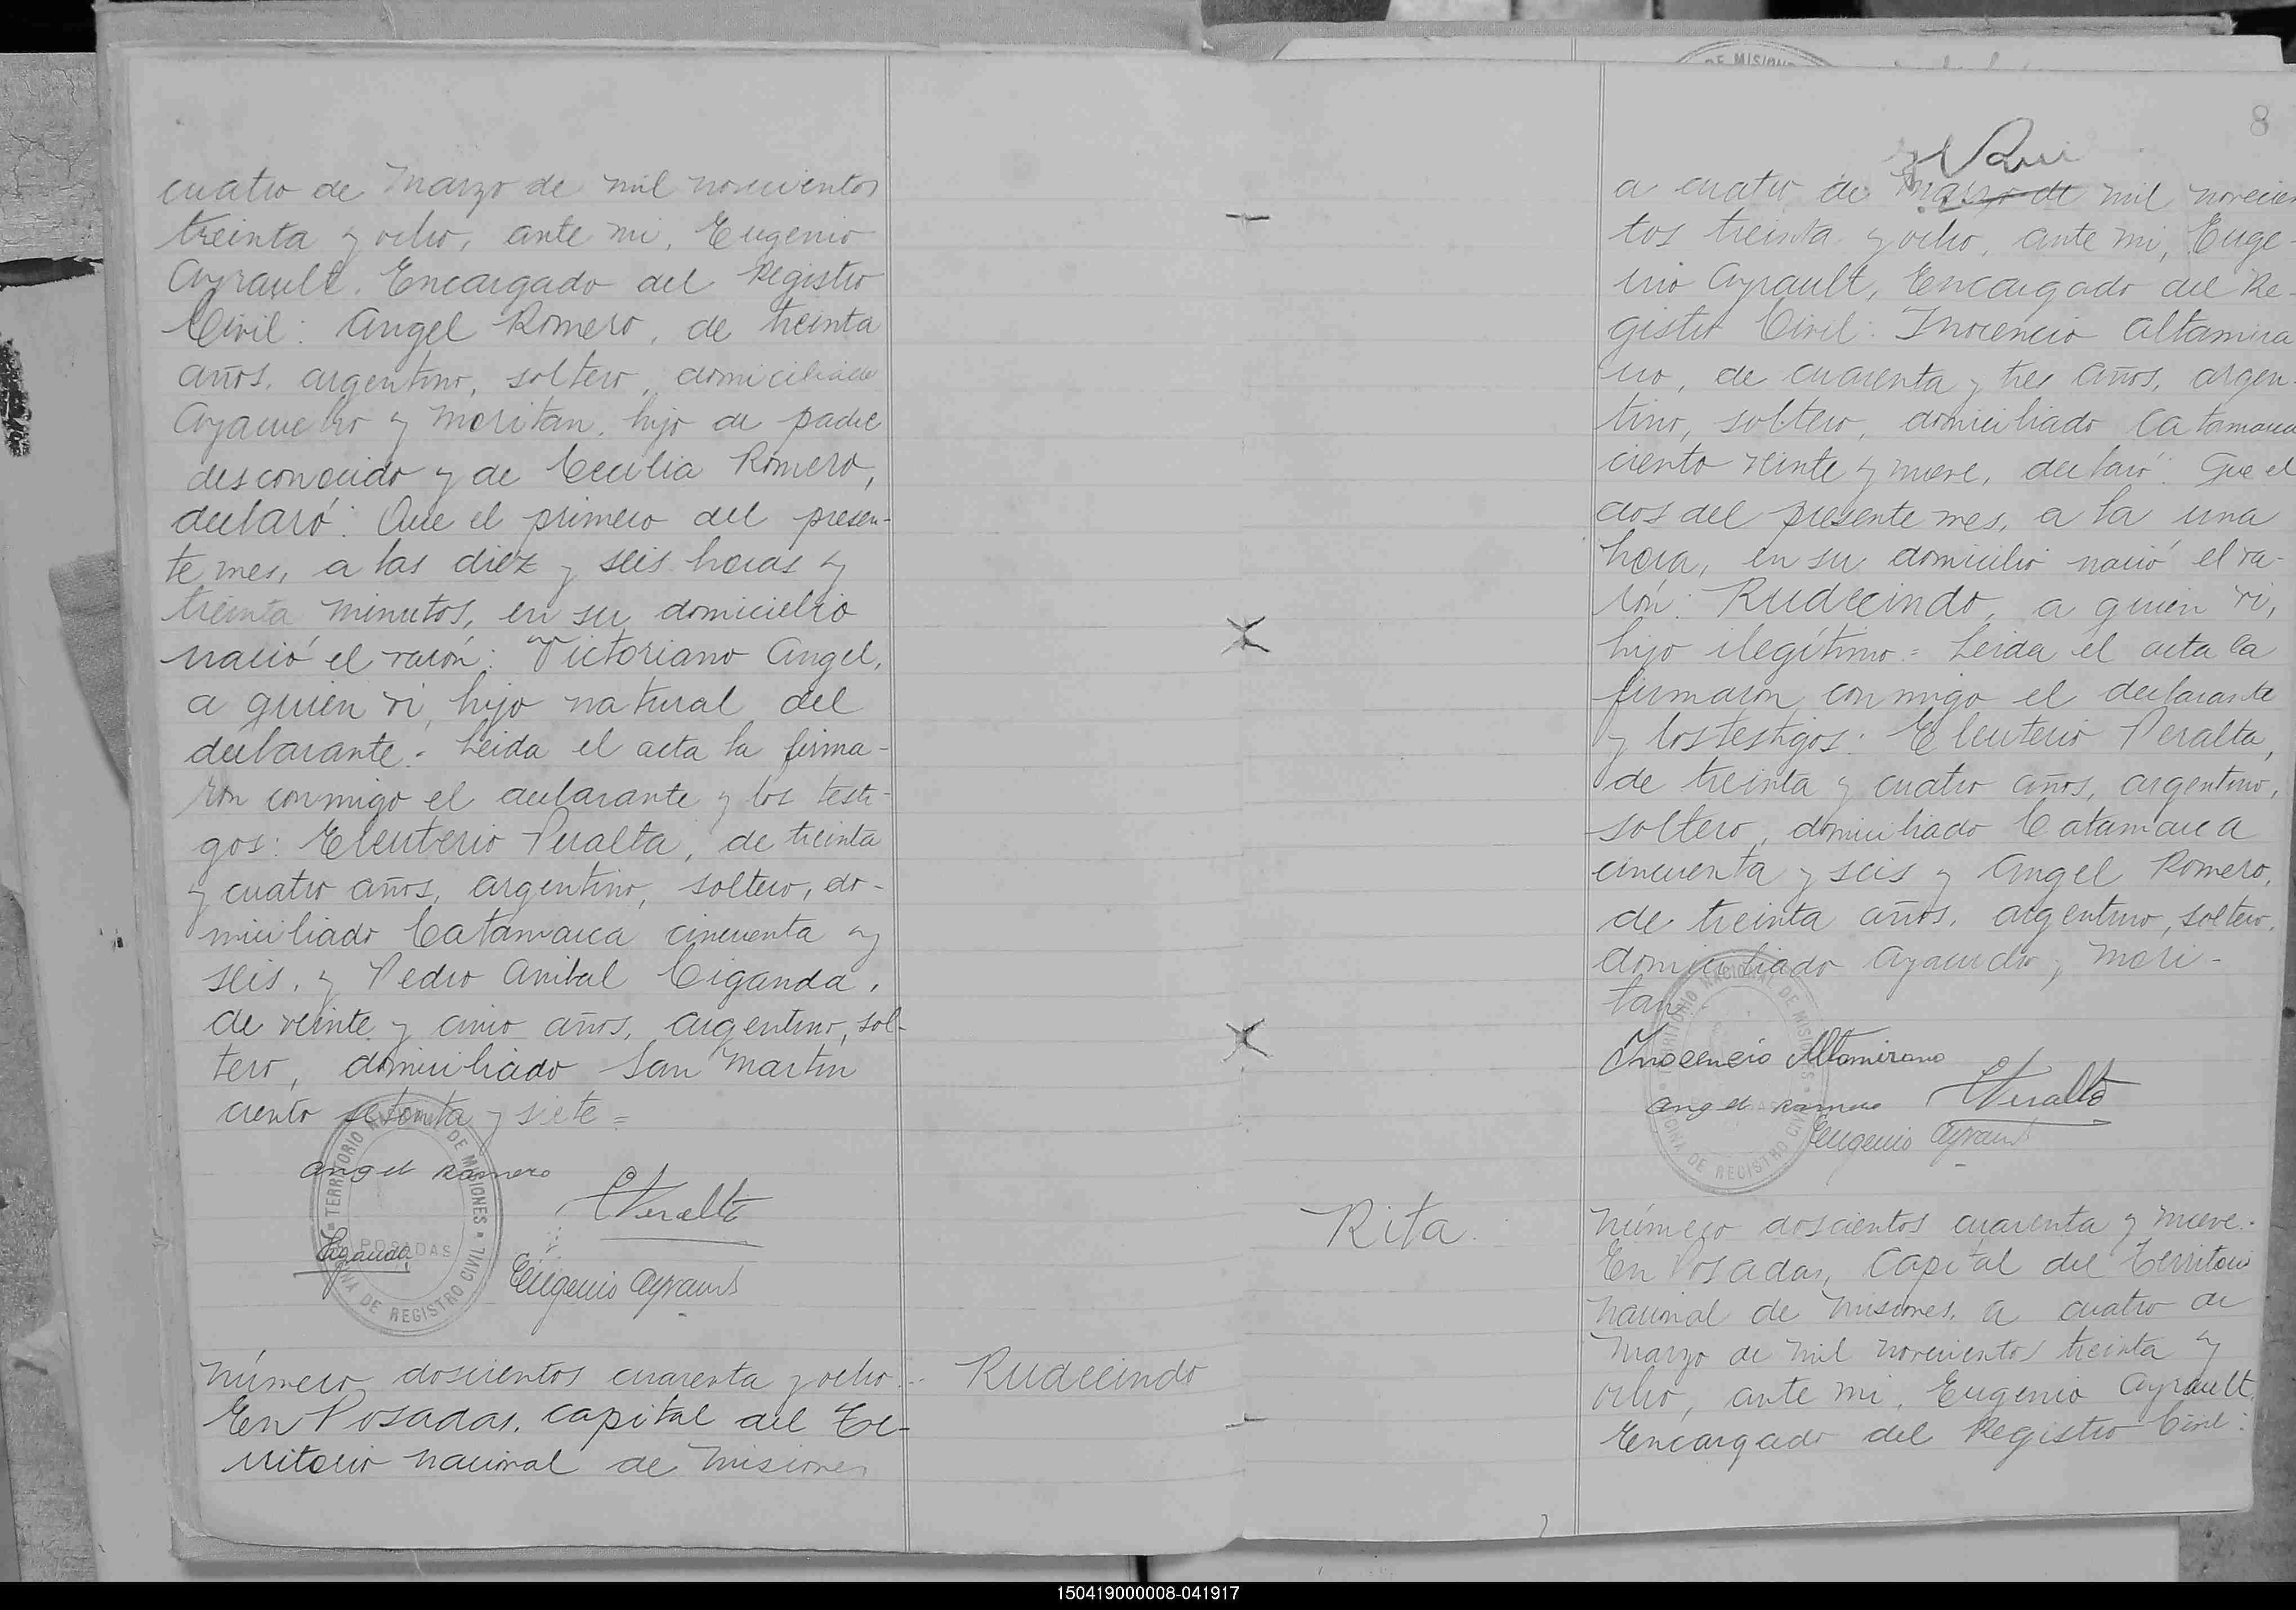 cuatro de Marzo de mil novecientos
treinta y ocho, ante mi, Eugenio
Ayrault, Encargado del Registro
Civil: Angel Romero, de treinta
años, argentino, soltero, domiciliado
Ayacucho y Moritan, hijo de padre
desconocido y de Cecilia Romero,
declaró: Que el primero del presen-
te mes, a las diez y seis horas y
treinta minutos, en su domicilio
nació el varón: Victoriano Angel,
a quien vi, hijo natural del
declarante.- Leida el acta la firma-
ron conmigo el declarante y los testi-
gos: Eleuterio Peralta, de treinta
y cuatro años, argentino, soltero, do-
miciliado Catamarca cincuenta y
seis, y Pedro Anibal Ciganda,
de veinte y cinco años, argentino, sol-
tero, domiciliado San Martin
ciento setenta y siete =
Angel Romero
EPeralta
Ciganda
Eugenio Ayrault
TERRITORIO NACIONAL DE MISIONES
POSADAS
OFICINA DE REGISTRO CIVIL
Número doscientos cuarenta y ocho.-
Rudecindo
En Posadas, Capital del Te-
rritorio nacional de Misiones
DE MISIONES
8
a cuatro de Marzo de mil novecien
tos treinta y ocho, ante mi, Euge-
nio Ayrault, Encargado del Re-
gistro Civil: Inocencio Altamira
no, de cuarenta y tres años, argen-
tino, soltero, domiciliado Catamarca
ciento veinte y nueve, declaró: Que el
dos del presente mes, a la una
hora, en su domicilio nació el va-
rón: Rudecindo, a quien vi,
hijo ilegítimo = Leida el acta la
firmaron conmigo el declarante
y los testigos: Eleuterio Peralta,
de treinta y cuatro años, argentino,
soltero, domiciliado Catamarca
cincuenta y seis y Angel Romero,
de treinta años, argentino, soltero,
domiciliado Ayacucho y Mori-
tan
Inocencio Altamirano
Angel Romero
EPeralta
Eugenio Ayrault
TERRITORIO NACIONAL DE MISIONES
OFICINA DE REGISTRO CIVIL
Rita.
Número doscientos cuarenta y nueve.-
En Posadas, Capital del Territorio
nacional de Misiones, a cuatro de
Marzo de mil novecientos treinta y
ocho, ante mi, Eugenio Ayrault,
Encargado del Registro Civil:
150419000008-041917